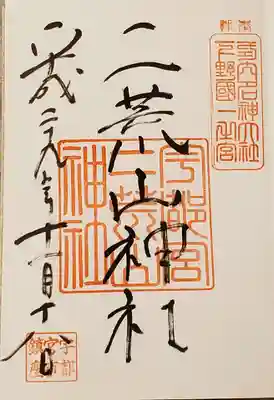 式内名神大社
下野國一之宮
二荒山神社
宇都宮
二荒山
神社
平成二十九年十一月十八日
宇都
宮市
鎮座